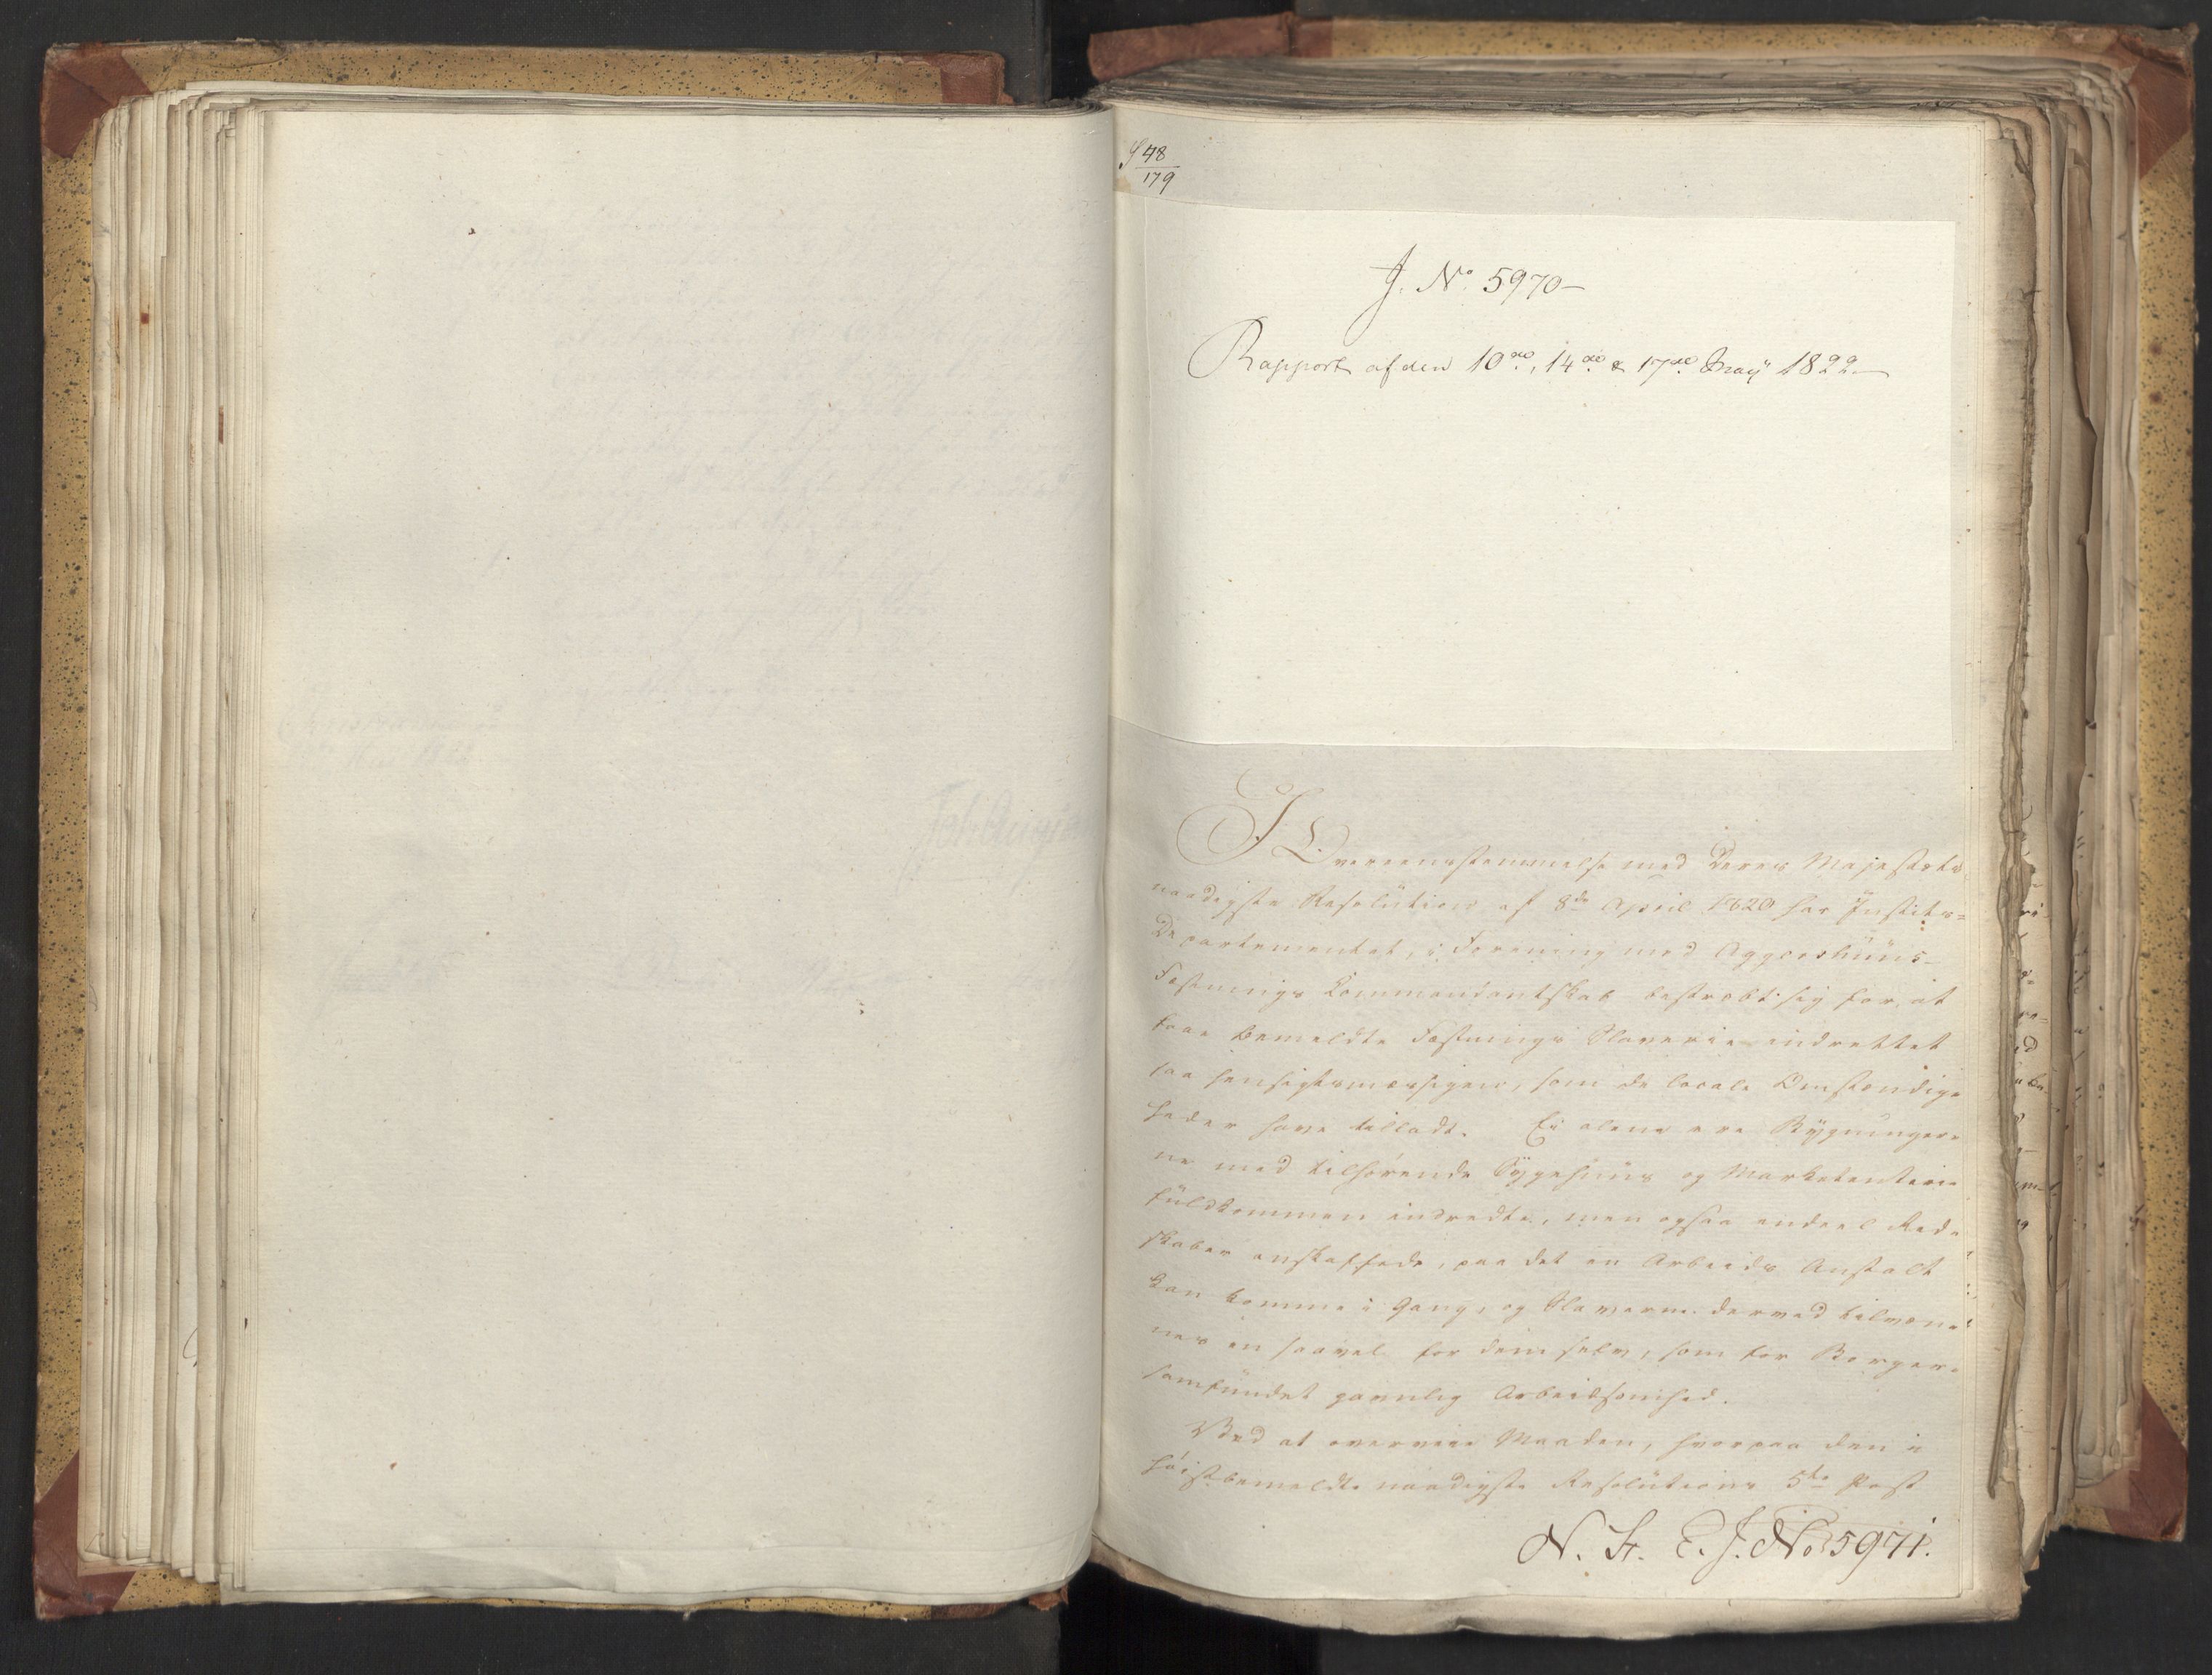 S 48
179
J. No. 5970-
Rapport af den 10de, 14de & 17de Maÿ 1822.
I Overeensstemmelse med Deres Majestæts
naadigste Resolution af 8de April 1820 har Justits-
Departementet, i Forening med Aggershuus-
Fæstnings Commandantskab bestræbt sig for, at
faae bemeldte Fæstnings Slaverie indrettet
saa hensigtsmæssigen, som de locale Omstændig-
heder have tilladt. Ei alene ere Bygninger-
ne med tilhørende Sygehuus og Marketenterie
fuldkommen indredte, men ogsaa endeel Red-
skaber anskaffede, paa det en Arbeids Anstalt
kan komme i Gang, og Slaverne derved tilvæn-
nes en saavel for dem selv, som for Borger-
samfundet gavnlig Arbeidsomhed.
Ved at overveie Maaden, hvorpaa den i
høistbemeldte naadigste Resolutions 5te Post
N. St. E. J. No 5971.